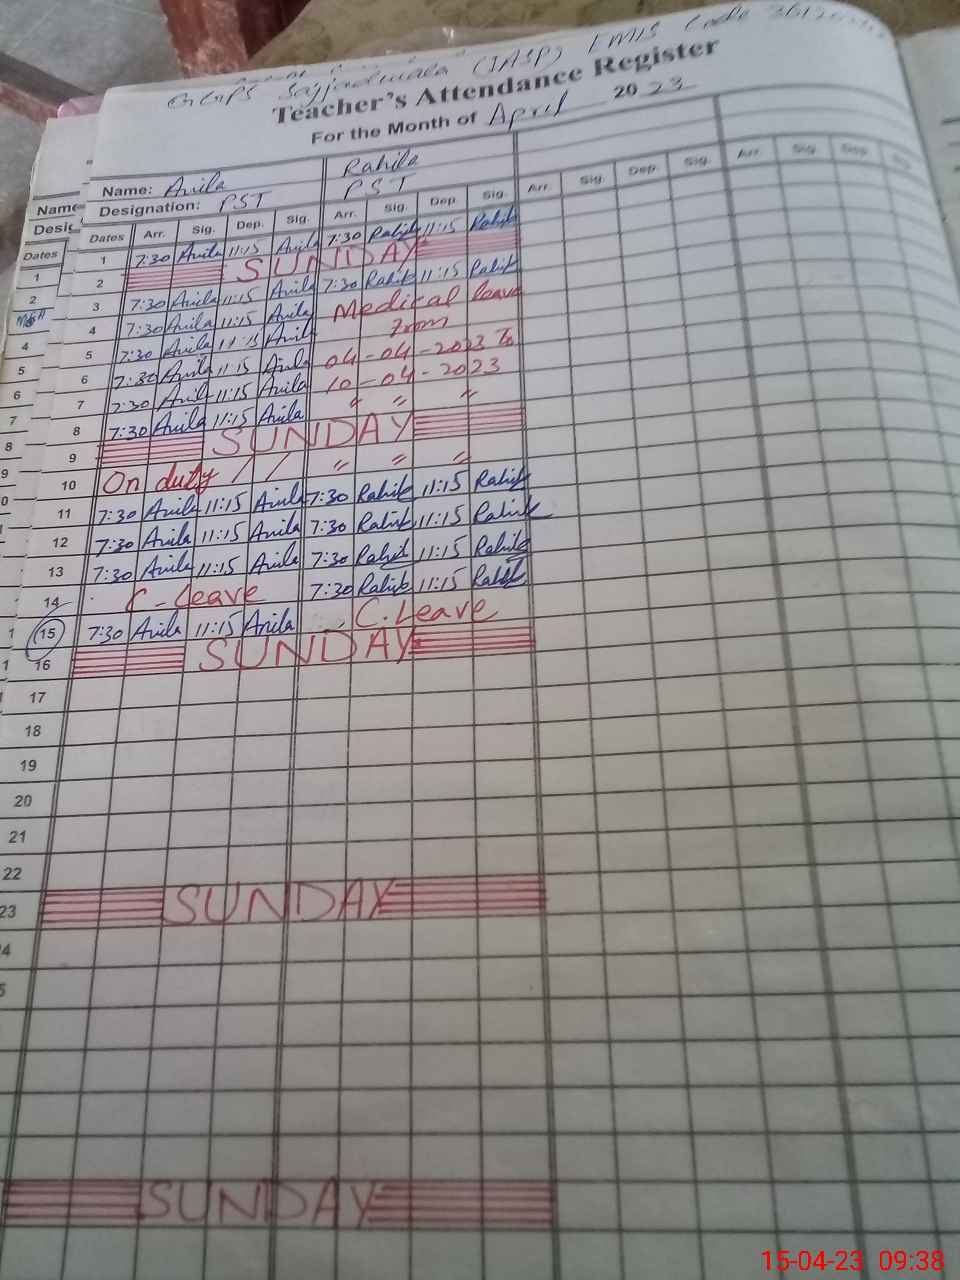 Sajjadwala (IASP) EMIS Code
Teacher's Attendance Register
For the Month of April 2023
Name: Anila Rahila
Designation: PST PST
Dates Arr. Sig. Dep. Sig. Arr. Sig. Dep. Sig. Arr. Sig. Dep. Sig. Arr. Sig. Dep.
1 7:30 Anila 11:15 Anila 7:30 Rahila 11:15 Rahila
2 SUNDAY
3 7:30 Anila 11:15 Anila 7:30 Rahila 11:15 Rahila
4 7:30 Anila 11:15 Anila Medical leave
5 7:30 Anila 11:15 Anila From
6 7:30 Anila 11:15 Anila 04-04-2023 To
7 7:30 Anila 11:15 Anila 10-04-2023
8 7:30 Anila 11:15 Anila " " "
9 SUNDAY
10 On duty / / " " "
11 7:30 Anila 11:15 Anila 7:30 Rahila 11:15 Rahila
12 7:30 Anila 11:15 Anila 7:30 Rahila 11:15 Rahila
13 7:30 Anila 11:15 Anila 7:30 Rahila 11:15 Rahila
14 C-Leave 7:30 Rahila 11:15 Rahila
15 7:30 Anila 11:15 Anila C.Leave
16 SUNDAY
17
18
19
20
21
22
23 SUNDAY
SUNDAY
Name
Desig
Dates
1
2
4
5
6
7
8
9
15-04-23 09:38